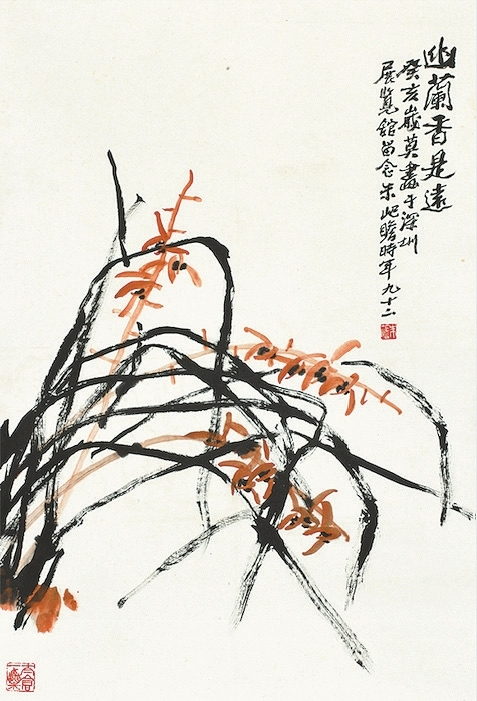 幽蘭香是遠
癸亥歲莫畫于深圳
展覽館留念朱屺瞻時年九十二